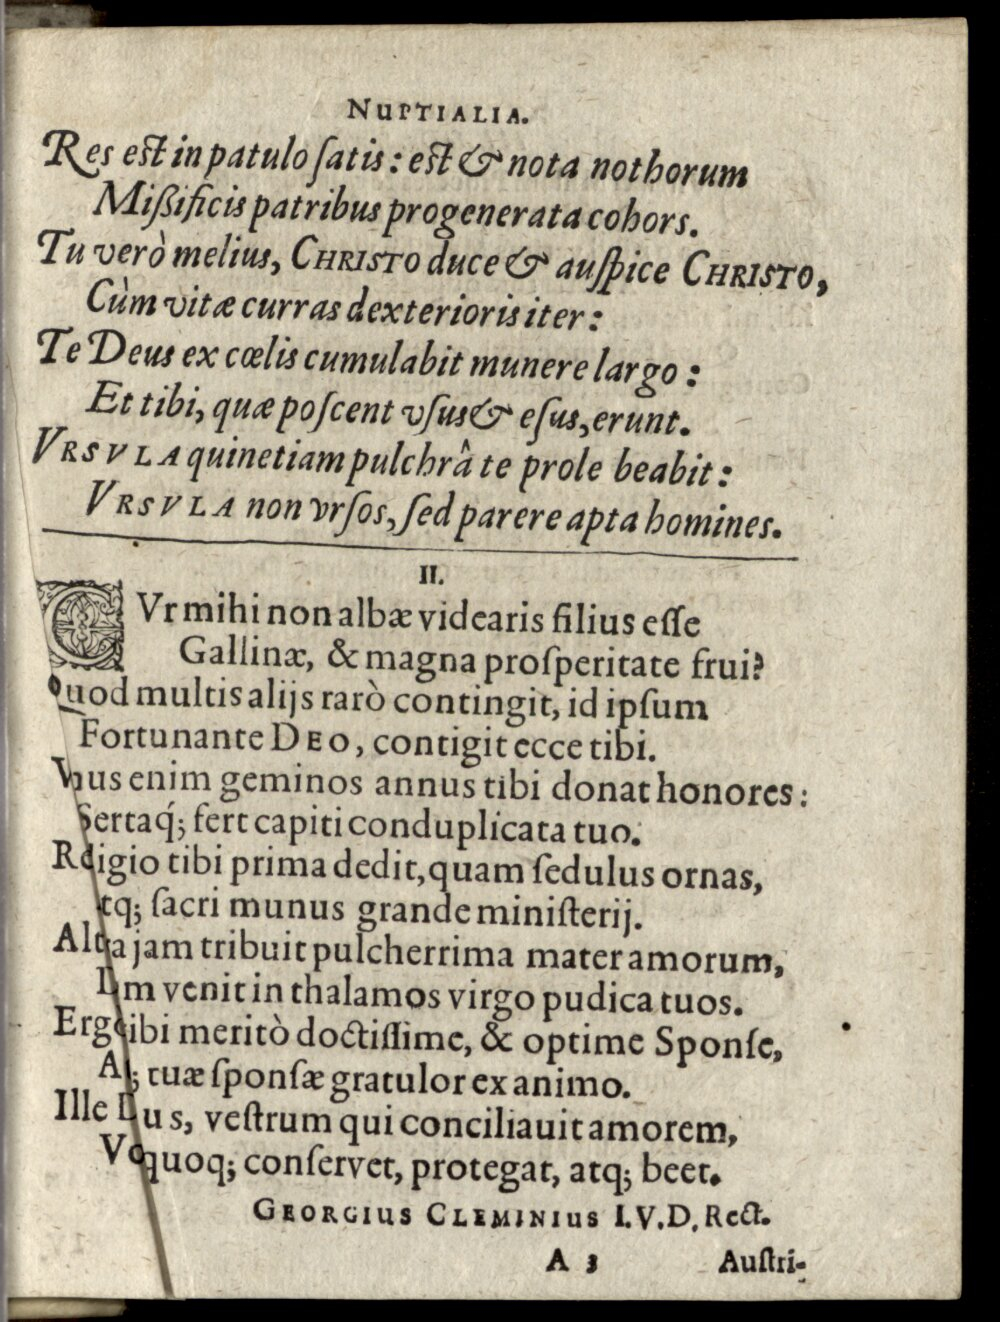 NUPTIALIA.
Res est in patulo ſatis: est & nota nothorum
Mißificis patribus progenerata cohors.
Tu verò melius, CHRISTO duce & auſpice CHRISTO,
Cùm vitæ curras dexterioris iter:
Te Deus ex cœlis cumulabit munere largo:
Et tibi, quæ poſcent vſus & eſus, erunt.
VRSVLA quinetiam pulchrâ te prole beabit:
VRSVLA non vrſos, ſed parere apta homines.
II.
CVr mihi non albæ videaris filius eſſe
Gallinæ, & magna proſperitate frui?
Quod multis alijs rarò contingit, id ipſum
Fortunante DEO, contigit ecce tibi.
Vnus enim geminos annus tibi donat honores:
Sertaq́; fert capiti conduplicata tuo.
Religio tibi prima dedit, quam ſedulus ornas,
tq; ſacri munus grande miniſterij.
Alta jam tribuit pulcherrima mater amorum,
m venit in thalamos virgo pudica tuos.
Ergo ibi meritò doctiſſime, & optime Sponſe,
A; tuæ ſponſæ gratulor ex animo.
Ille Dus, veſtrum qui conciliauit amorem,
Vo quoq; conſervet, protegat, atq; beet.
GEORGIUS CLEMINIUS I.V.D. Rect.
A 3 Auſtri-